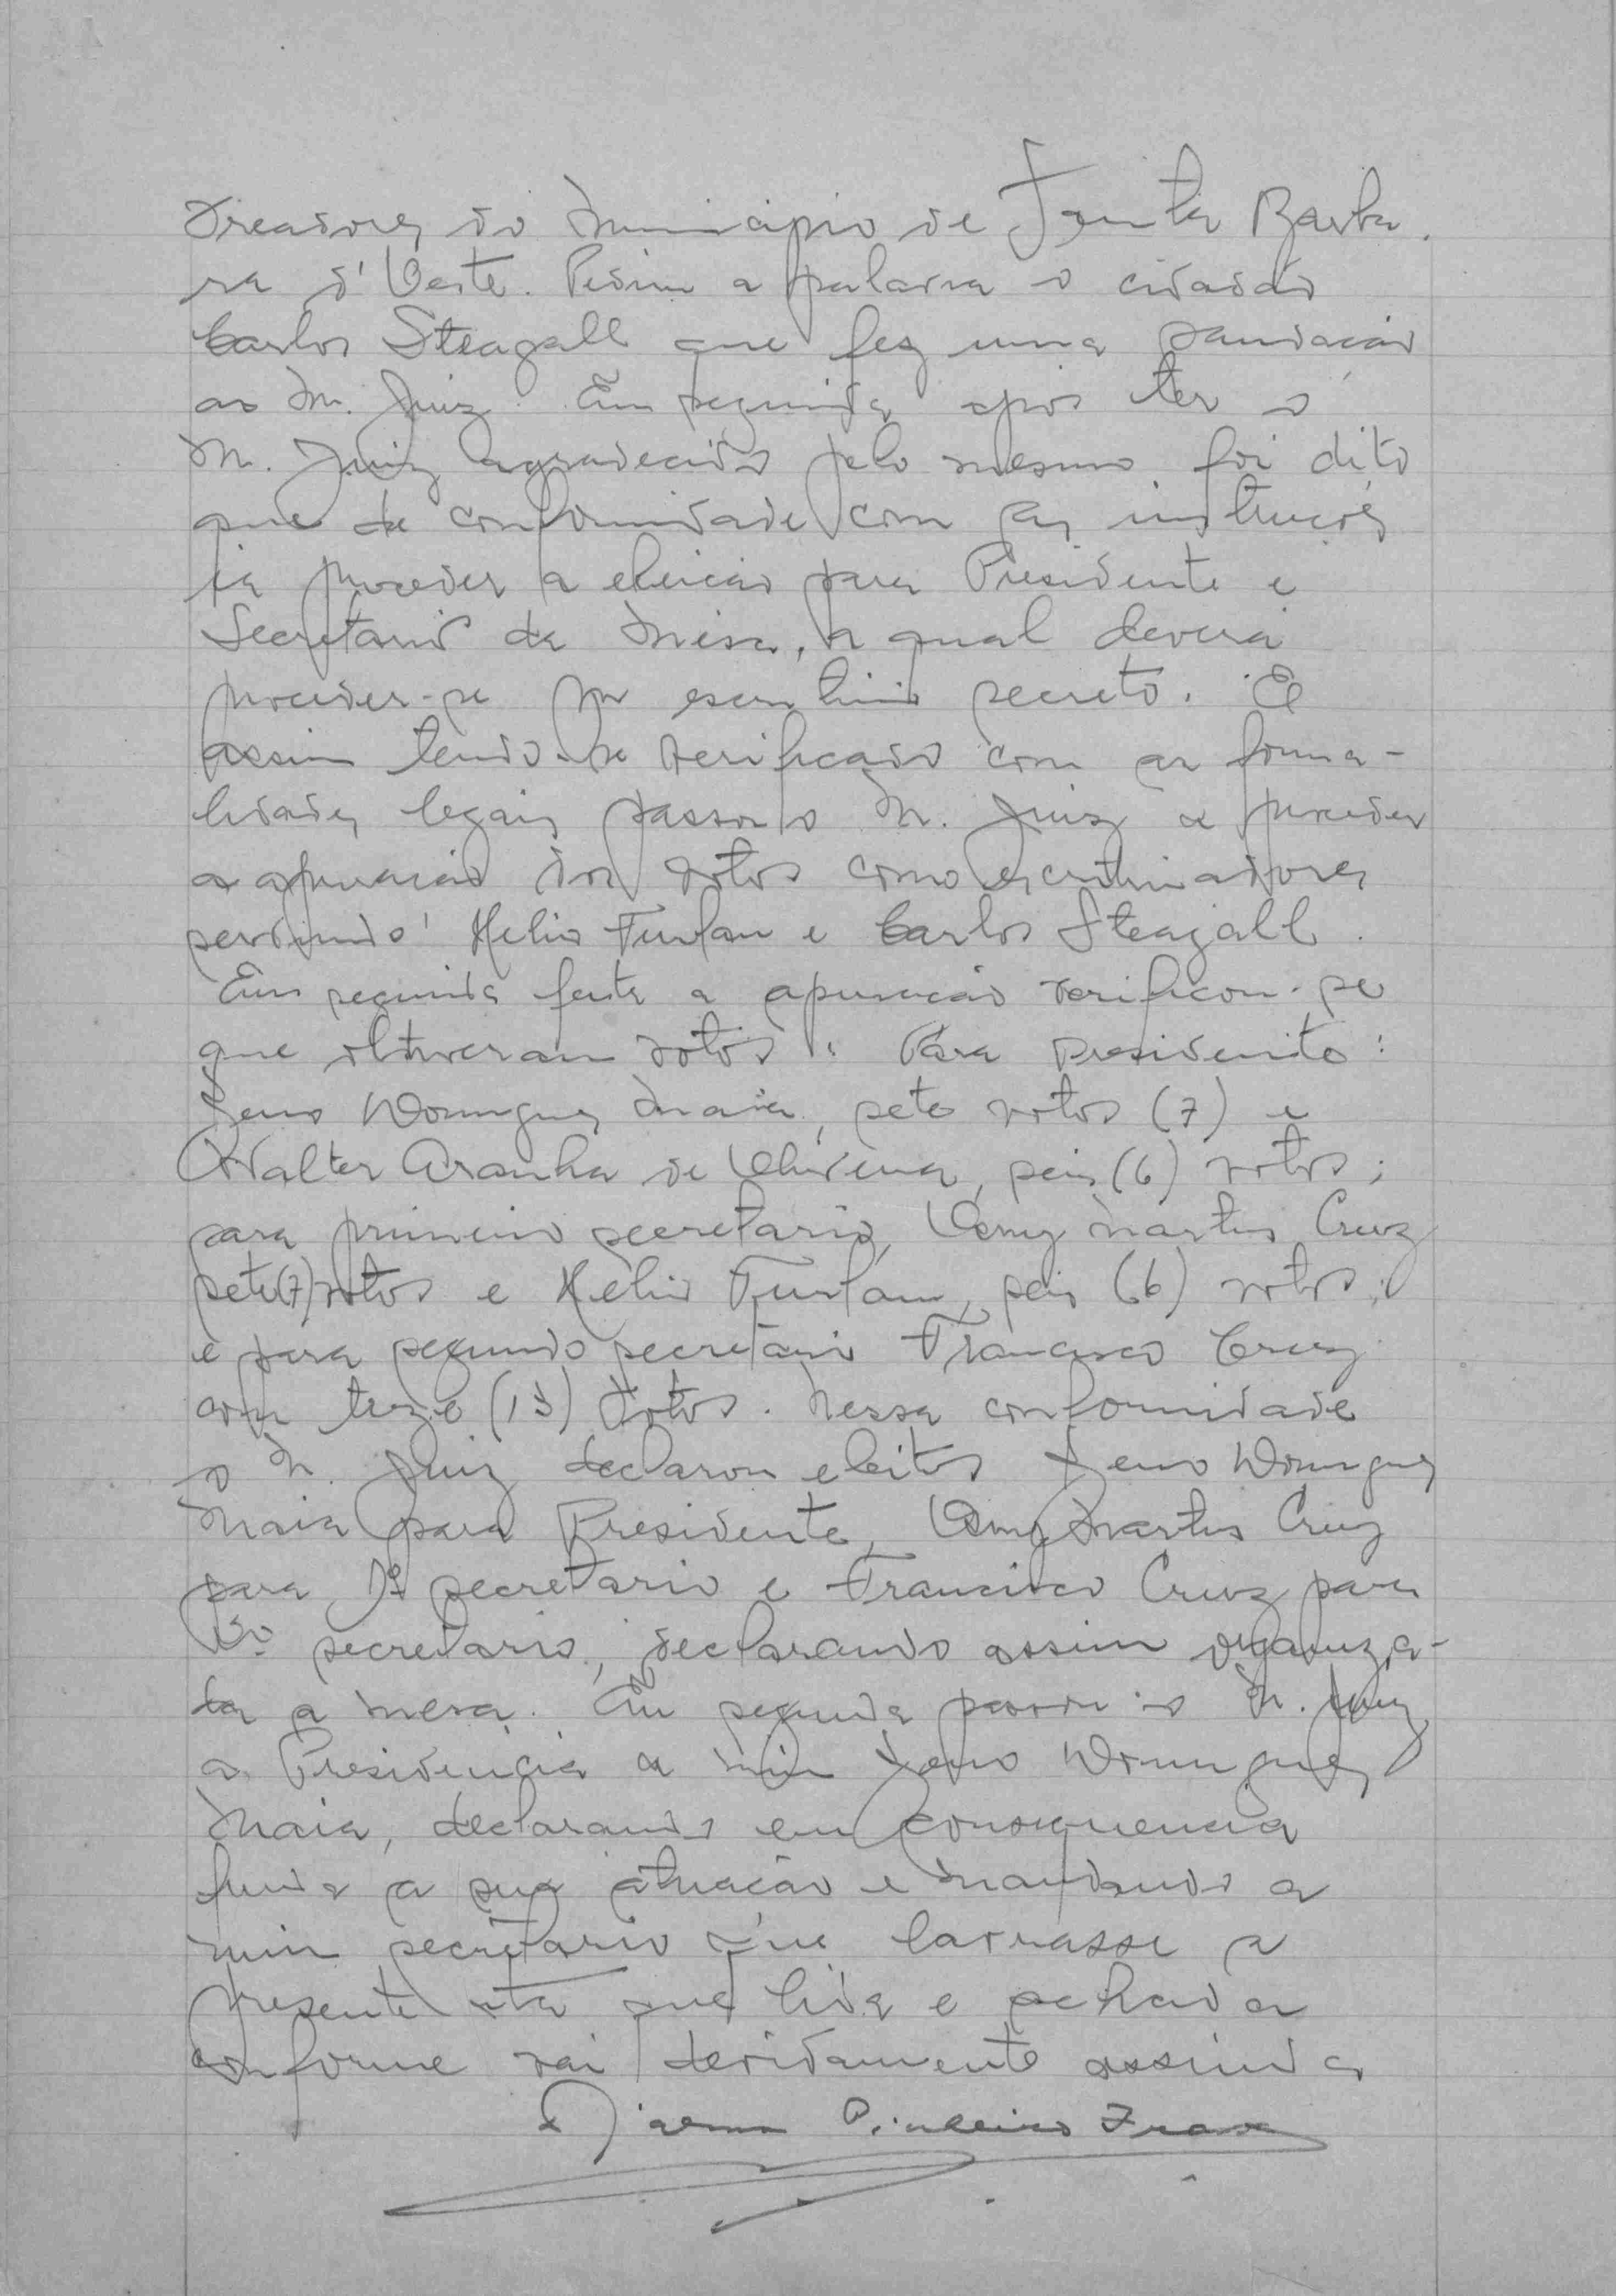 Vreadores do Municipio de Santa Barba-
ra d'Oeste. Pediu a palavra o cidadão
Carlos Steagall que fez uma saudação
ao M. Juiz. Em seguida após ter o
M. Juiz agradecido pelo mesmo foi dito
que de conformidade com as instruções
ia proceder a eleição para Presidente e
Secretario da Mesa, a qual deverá
proceder-se por escrutinio secreto. E
assim tendo-se verificado com as forma-
lidades legais passou o M. Juiz a proceder
a apuração dos votos como escrutinadores
servindo Helio Furlan e Carlos Steagall.
Em seguida feita a apuração verificou-se
que obtiveram votos: Para Presidente:
Domingues Maia, sete votos (7) e
Walter Aranha de Oliveira, seis (6) votos;
para primeiro secretario, Martins Cruz
sete (7) votos e Hélio Furlan, seis (6) votos;
e para segundo secretario Francisco Cruz
com treze (13) votos. Nessa conformidade
o M. Juiz declarou eleitos Domingues
Maia para Presidente, Martins Cruz
para 1º secretario e Francisco Cruz para
2º secretario, declarando assim organiza-
da a mesa. Em seguida passou o M. Juiz
a Presidencia a mim Domingues
Maia, declarando em consequencia
finda a sua atuação e mandando a
mim secretario que lavrasse a
presente ata que lida e achada
conforme vai devidamente assinada
Pinheiro Franco